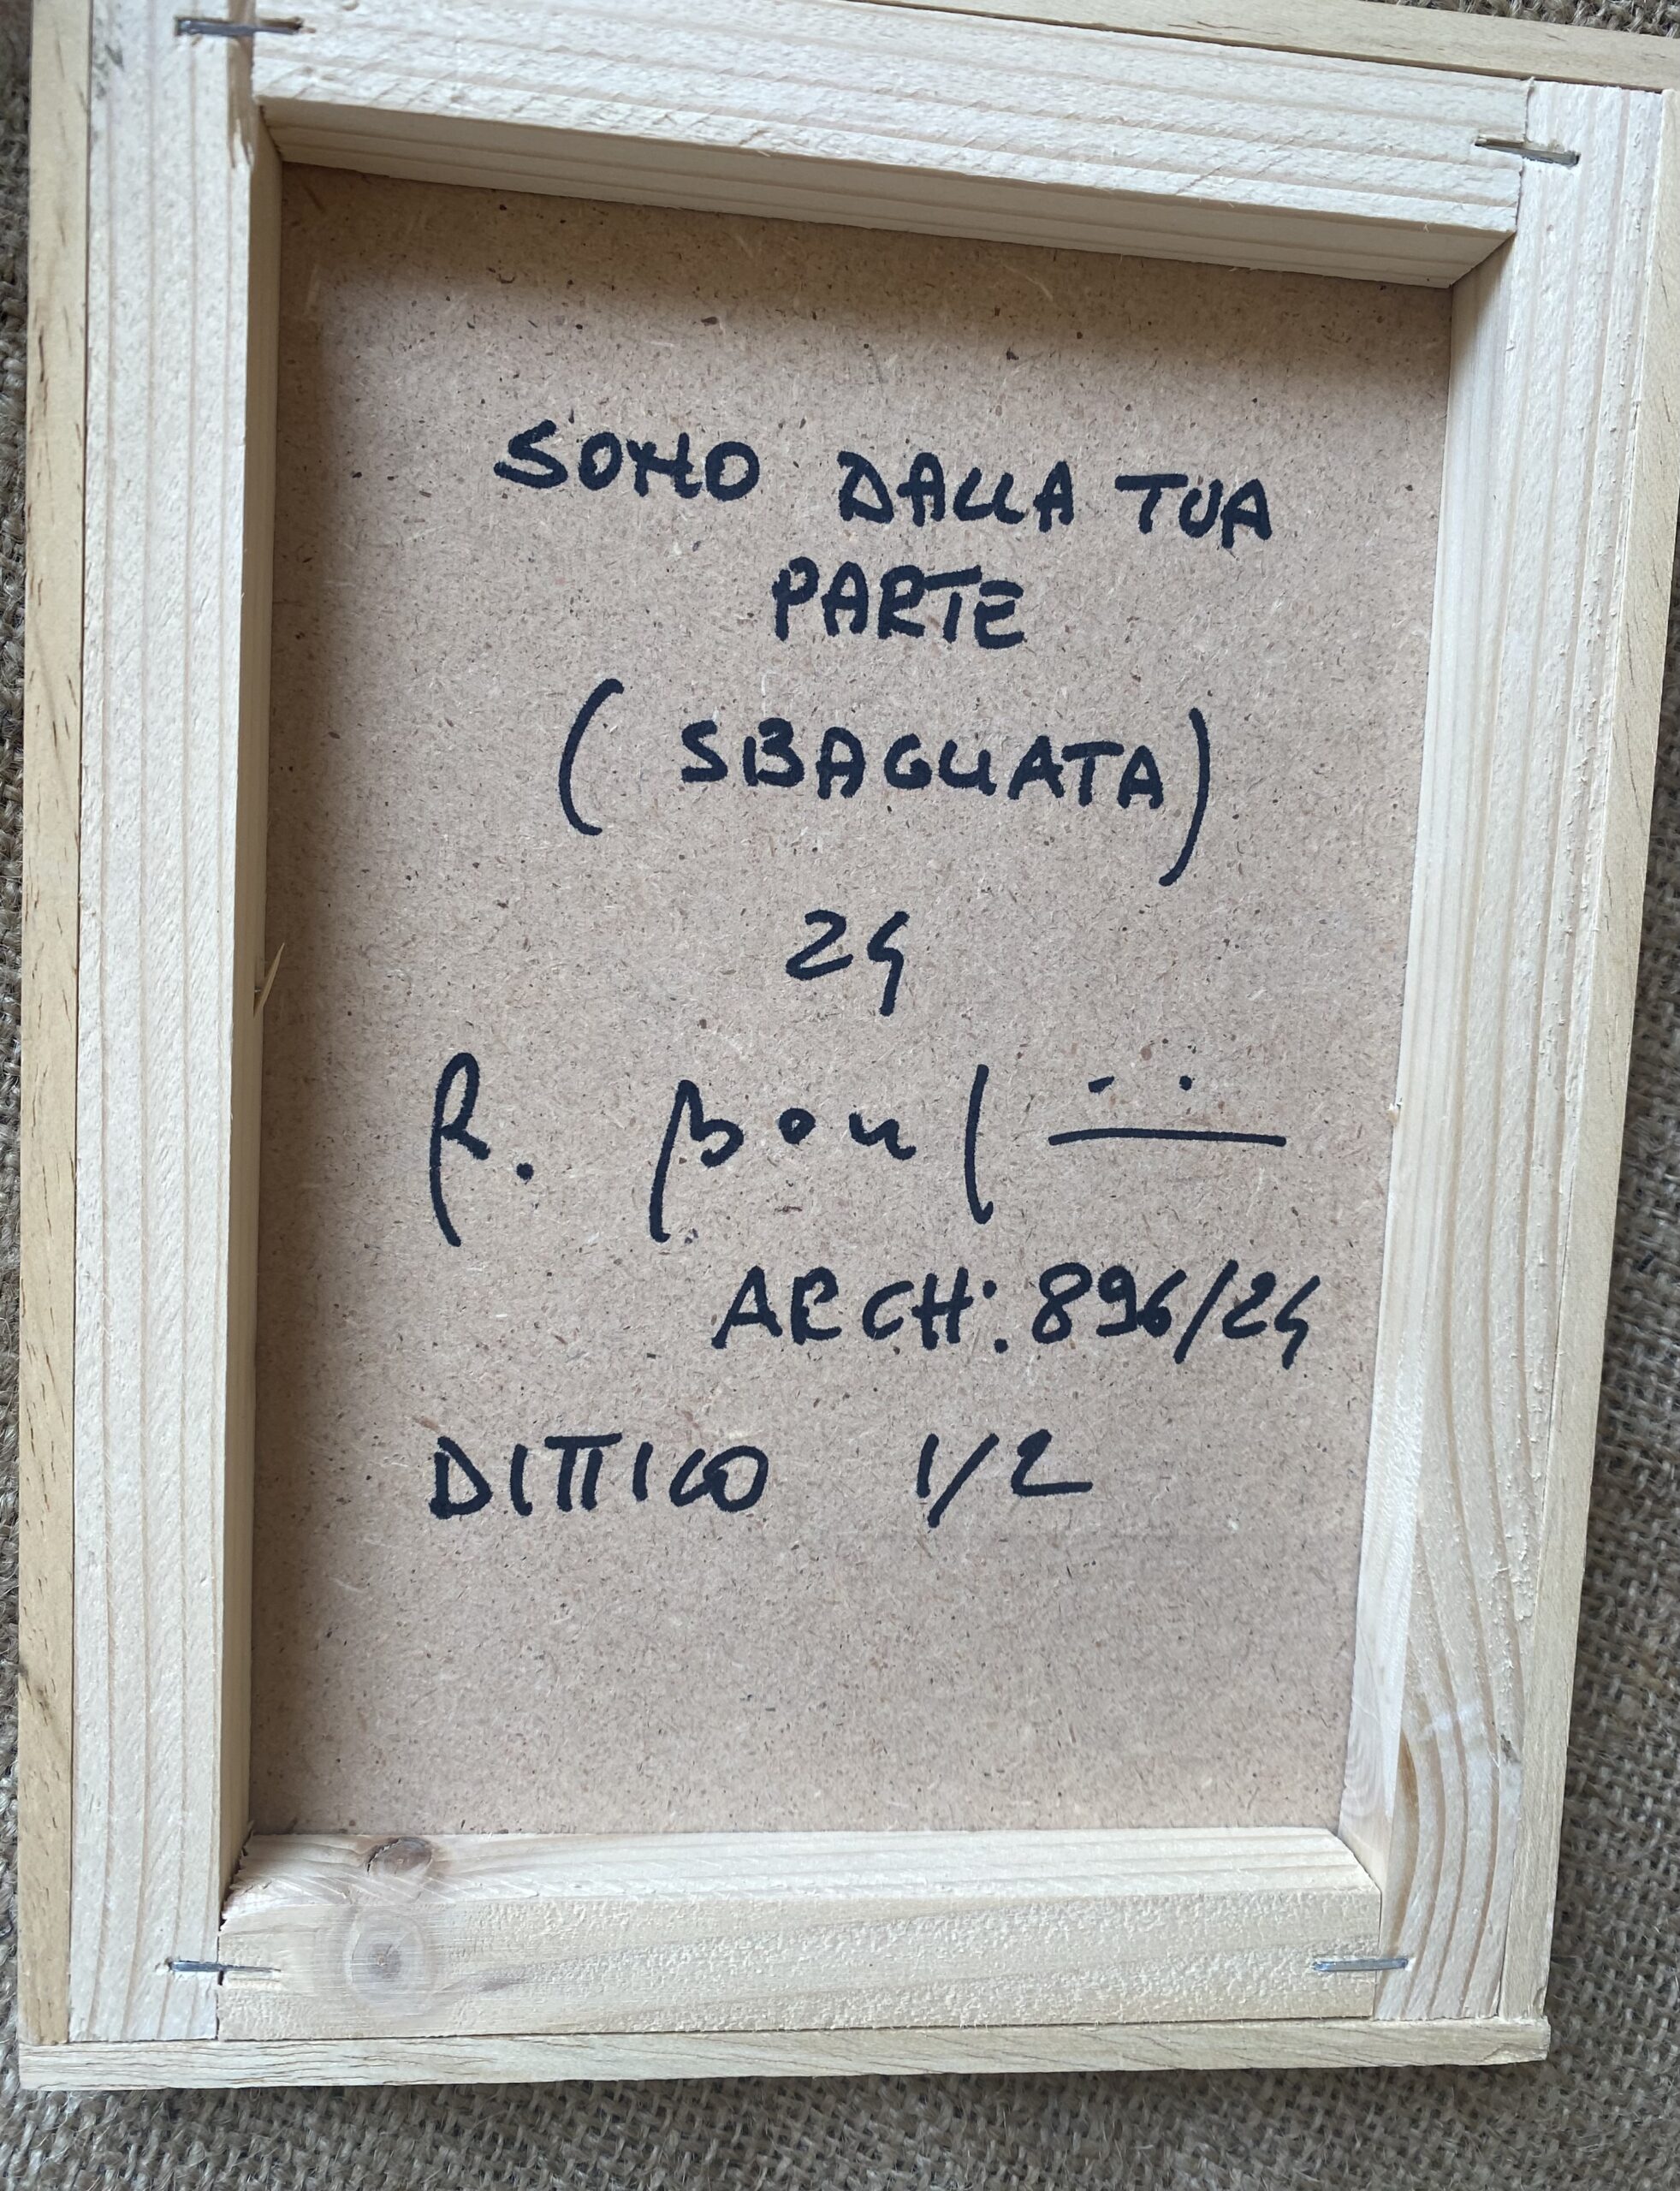 SONO DALLA TUA
PARTE
(SBAGLIATA)
24
ARCH: 896/24
DITTICO 1/2